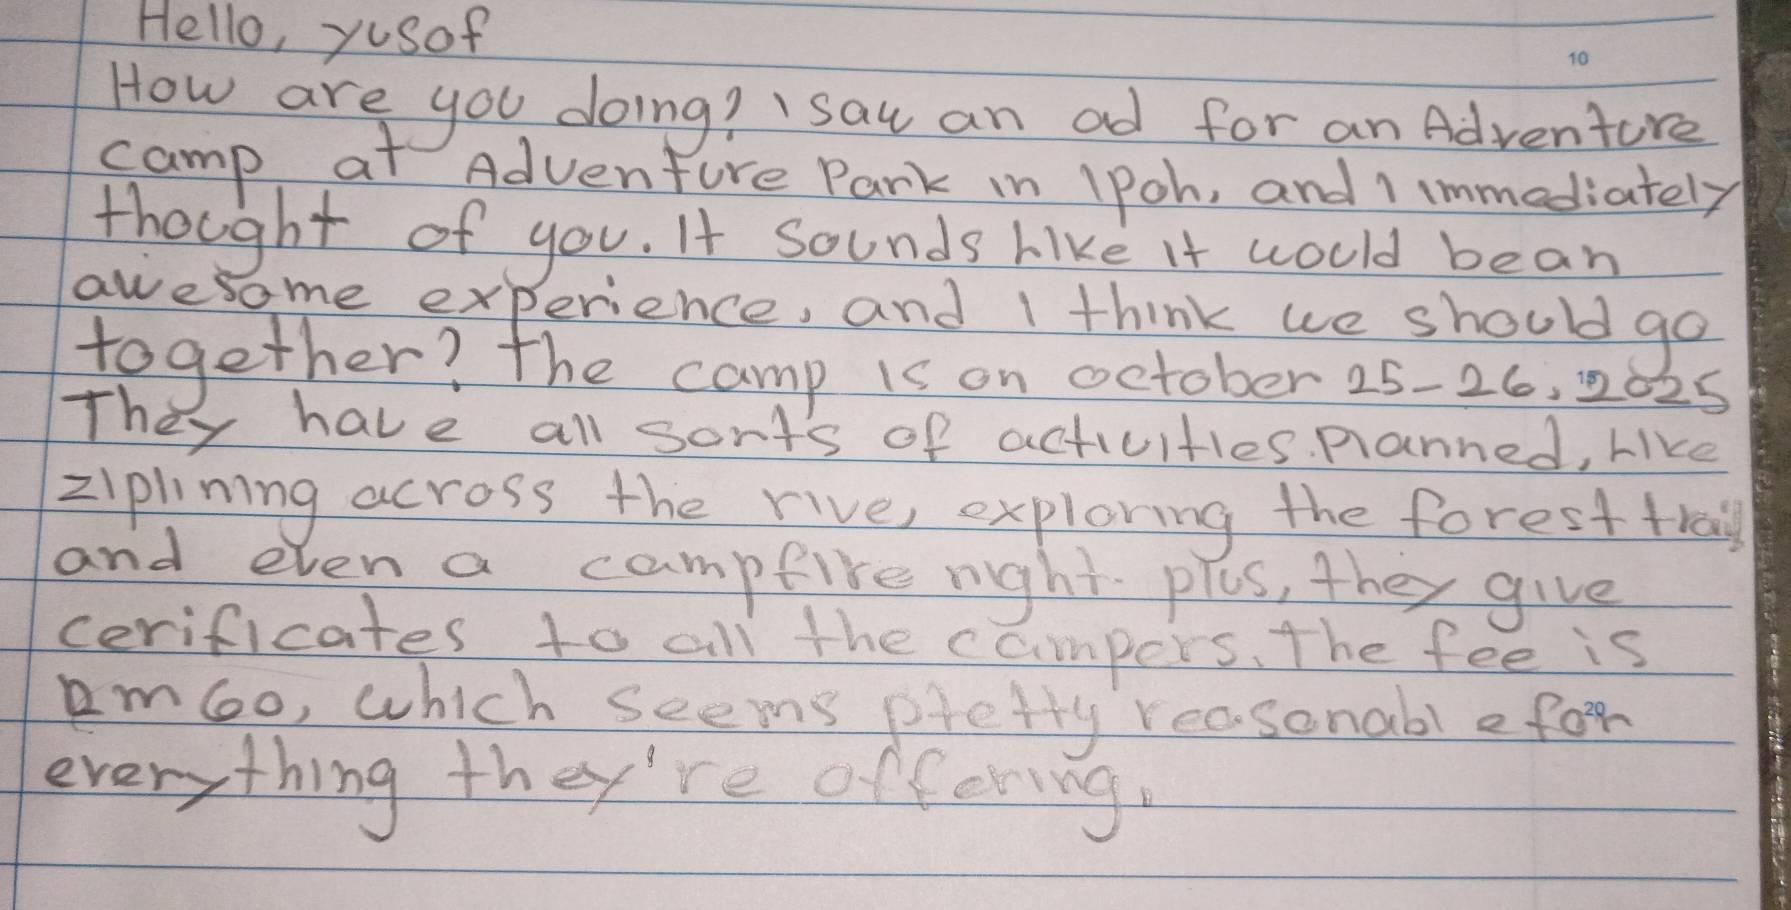 Hello, yusof
10
How are you doing? I saw an ad for an Adventure
camp at Adventure Park in Ipoh, and I immediately
thought of you. It sounds like it would bean
awesome experience, and I think we should go
together? the camp is on october 25-26, 2025
15
They have all sorts of activities planned, like
ziplining across the rive, exploring the forest trail
and even a campfire night. plus, they give
cerificates to all the campers. the fee is
Rm 60, which seems pretty reasonabl e for
20
everything they're offering.